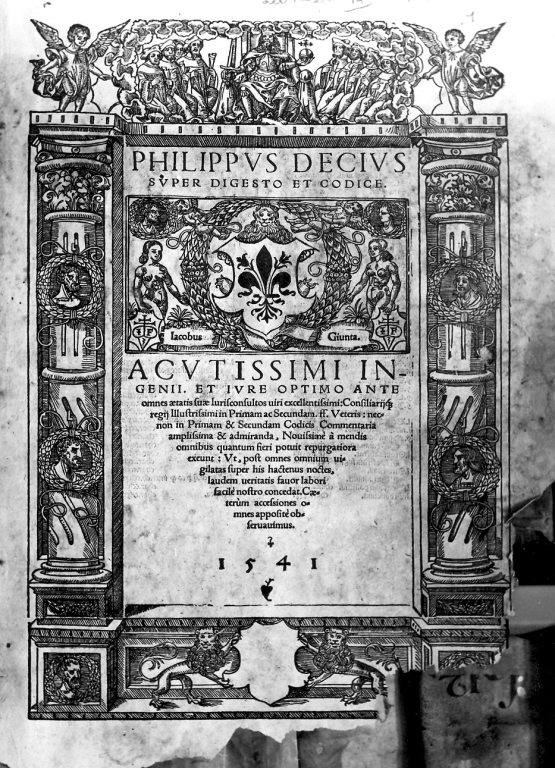 PHILIPPVS DECIVS
SVPER DIGESTO ET CODICE.
Iacobus
Giunta.
ACVTISSIMI IN-
GENII. ET IVRE OPTIMO ANTE
omnes ætatis suæ Iurisconsultos uiri excellentissimi: Consiliarijq;
regij Illustrissimi in Primam ac Secundam. ff. Veteris: nec-
non in Primam & Secundam Codicis Commentaria
amplissima & admiranda, Nouissimè à mendis
omnibus quantum fieri potuit repurgatiora
exeunt: Vt, post omnes omnium ui-
gilatas super his hactenus noctes,
laudem ueritatis fauor labori
facilè nostro concedat. Cæ-
terùm accessiones o-
mnes appositè ob-
seruauimus.
1541